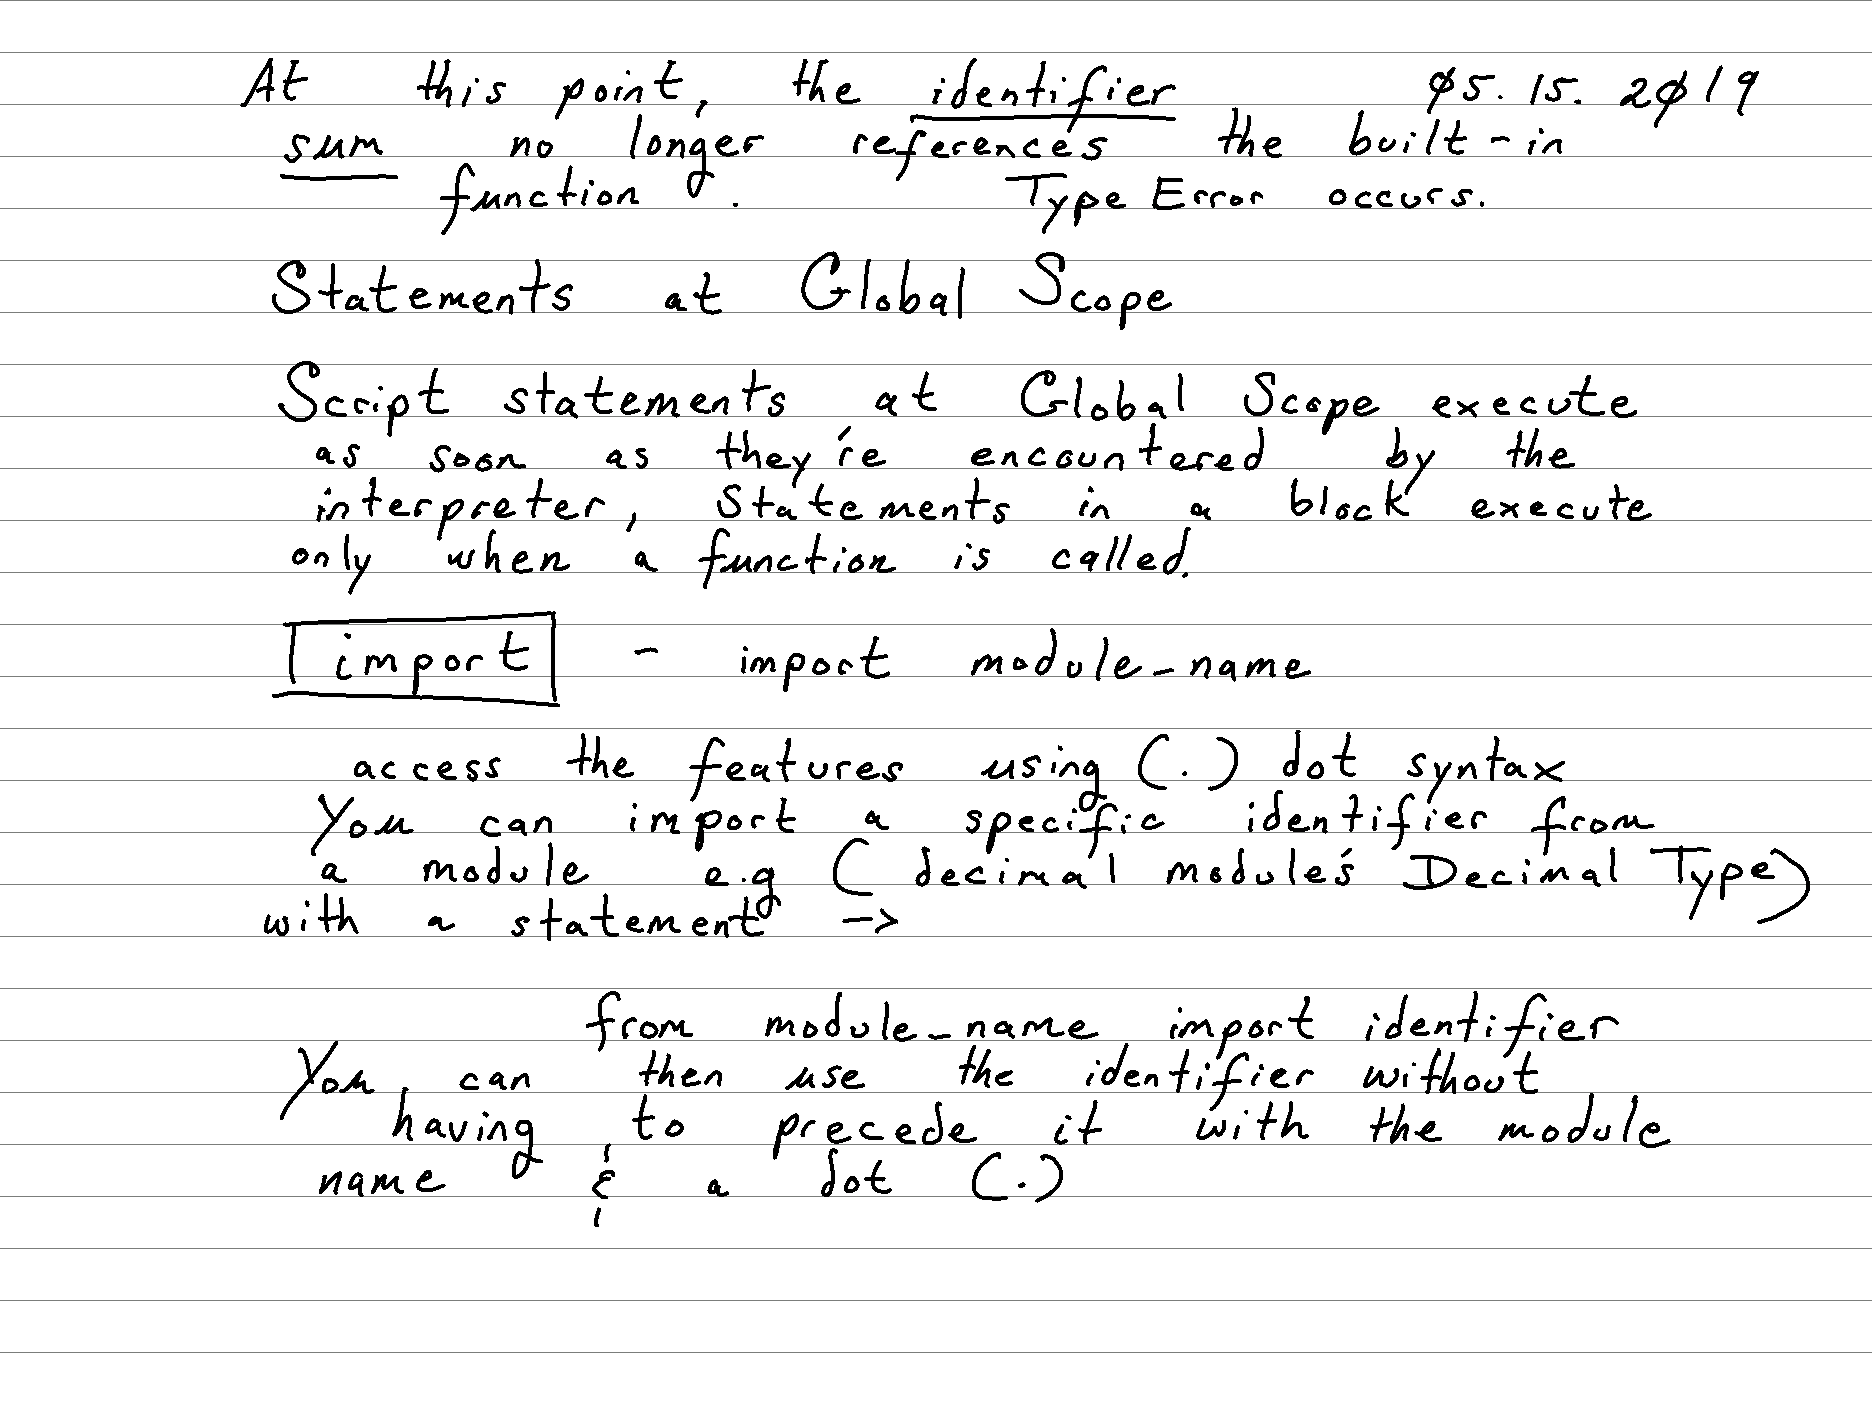 At this point, the identifier 05.15.2019
sum no longer references the built-in
function. Type Error occurs.
Statements at Global Scope
Script statements at Global Scope execute
as soon as they're encountered by the
interpreter, Statements in a block execute
only when a function is called.
import - import module_name
access the features using (.) dot syntax
You can import a specific identifier from
a module e.g ( decimal module's Decimal Type)
with a statement ->
from module_name import identifier
You can then use the identifier without
having to precede it with the module
name & a dot (.)